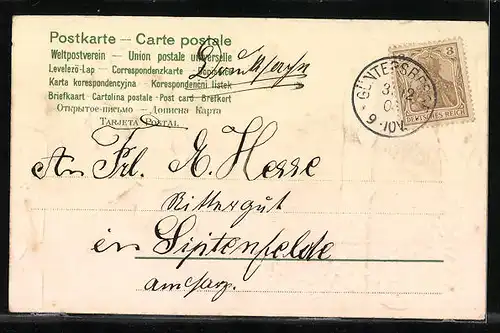 Postkarte – Carte postale
Weltpostverein – Union postale universelle
Levelező-Lap – Correspondenzkarte
Karta korespondencyjna – Korespondenční lístek
Briefkaart – Cartolina postale – Post card – Brefkort
Открытое-письмо – Дописна Карта
Tarjeta Postal
Drucksache
3
DEUTSCHES REICH
An Frl. A. Hesse
Rittergut
in Siptenfelde
am Harz.